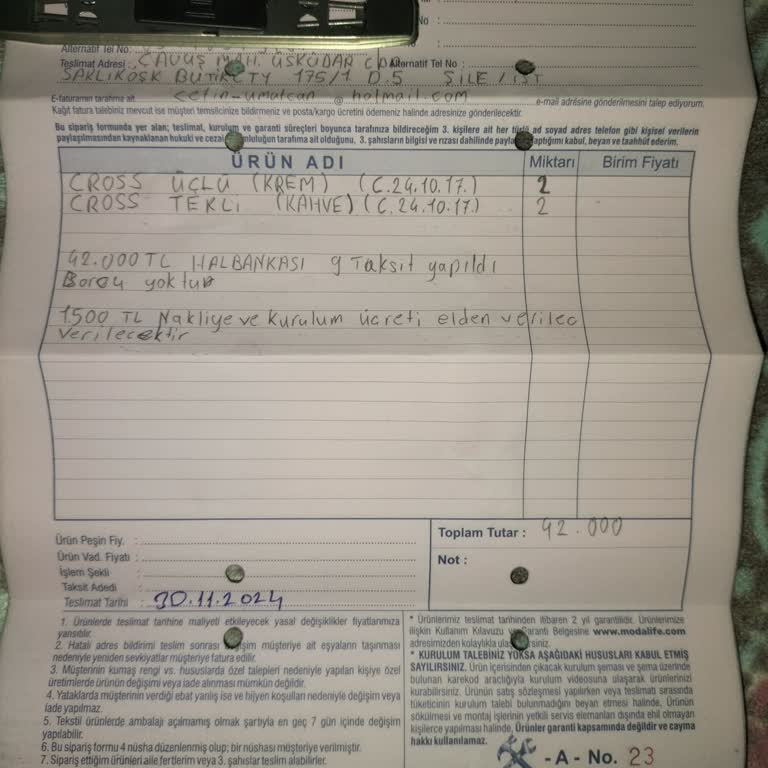 No :
Alternatif Tel No:
Teslimat Adresi : ÇAVUŞ MAH. ÜSKÜDAR CD Alternatif Tel No :
SAKLIKÖŞK BUTİK 175/1 D.5 ŞİLE/İST
E-faturamın tarafıma ait @ hotmail.com e-mail adresine gönderilmesini talep ediyorum.
Kağıt fatura talebiniz mevcut ise müşteri temsilcinize bildirmeniz ve posta/kargo ücretini ödemeniz halinde adresinize gönderilecektir.
Bu sipariş formunda yer alan; teslimat, kurulum ve garanti süreçleri boyunca tarafınıza bildireceğim 3. kişilere ait her türlü ad soyad adres telefon gibi kişisel verilerin
paylaşılmasından kaynaklanan hukuki ve cezai tarafıma ait olduğunu, 3. şahısların bilgisi ve rızası dahilinde kabul, beyan ve taahhüt ederim.
ÜRÜN ADI Miktarı Birim Fiyatı
CROSS ÜÇLÜ (KREM) (C.24.10.17.) 2
CROSS TEKLİ (KAHVE) (C.24.10.17.) 2
42.000 TL HALBANKASI 9 Taksit yapıldı
Borcu yoktur
1500 TL Nakliye ve Kurulum ücreti elden verilec
verilecektir
Ürün Peşin Fiy. :
Ürün Vad. Fiyatı :
İşlem Şekli :
Taksit Adedi :
Teslimat Tarihi : 30.11.2024
Toplam Tutar : 42.000
Not :
1. Ürünlerde teslimat tarihine maliyeti etkileyecek yasal değişiklikler fiyatlarımıza
yansıtılır.
2. Hatalı adres bildirimi teslim sonrası müşteriye ait eşyaların taşınması
nedeniyle yeniden sevkiyatlar müşteriye fatura edilir.
3. Müşterinin kumaş rengi vs. hususlarda özel talepleri nedeniyle yapılan kişiye özel
üretimlerde ürünün değişimi veya iade alınması mümkün değildir.
4. Yataklarda müşterinin verdiği ebat yanlış ise ve hijyen koşulları nedeniyle değişim veya
iade yapılmaz.
5. Tekstil ürünlerde ambalajı açılmamış olmak şartıyla en geç 7 gün içinde değişim
yapılabilir.
6. Bu sipariş formu 4 nüsha düzenlenmiş olup; bir nüshası müşteriye verilmiştir.
7. Sipariş ettiğim ürünleri aile fertlerim veya 3. şahıslar teslim alabilirler.
* Ürünlerimiz teslimat tarihinden itibaren 2 yıl garantilidir. Ürünlerimize
ilişkin Kullanım Kılavuzu ve Garanti Belgesine www.modalife.com
adresimizden kolaylıkla
* KURULUM TALEBİNİZ YOKSA AŞAĞIDAKİ HUSUSLARI KABUL ETMİŞ
SAYILIRSINIZ. Ürün içerisinden çıkacak kurulum şeması ve şema üzerinde
bulunan karekod aracılığıyla kurulum videosuna ulaşarak ürünlerinizi
kurabilirsiniz. Ürünün satış sözleşmesi yapılırken veya teslimatı sırasında
tüketicinin kurulum talebi bulunmadığını beyan etmesi halinde, Ürünün
sökülmesi ve montaj işlerinin yetkili servis elemanları dışında ehil olmayan
kişilerce yapılması halinde, Ürünler garanti kapsamında değildir ve cayma
hakkı kullanılamaz.
- A - No. 23